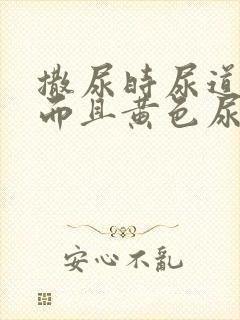 撒尿时尿道
而且黄色尿
安心不亂